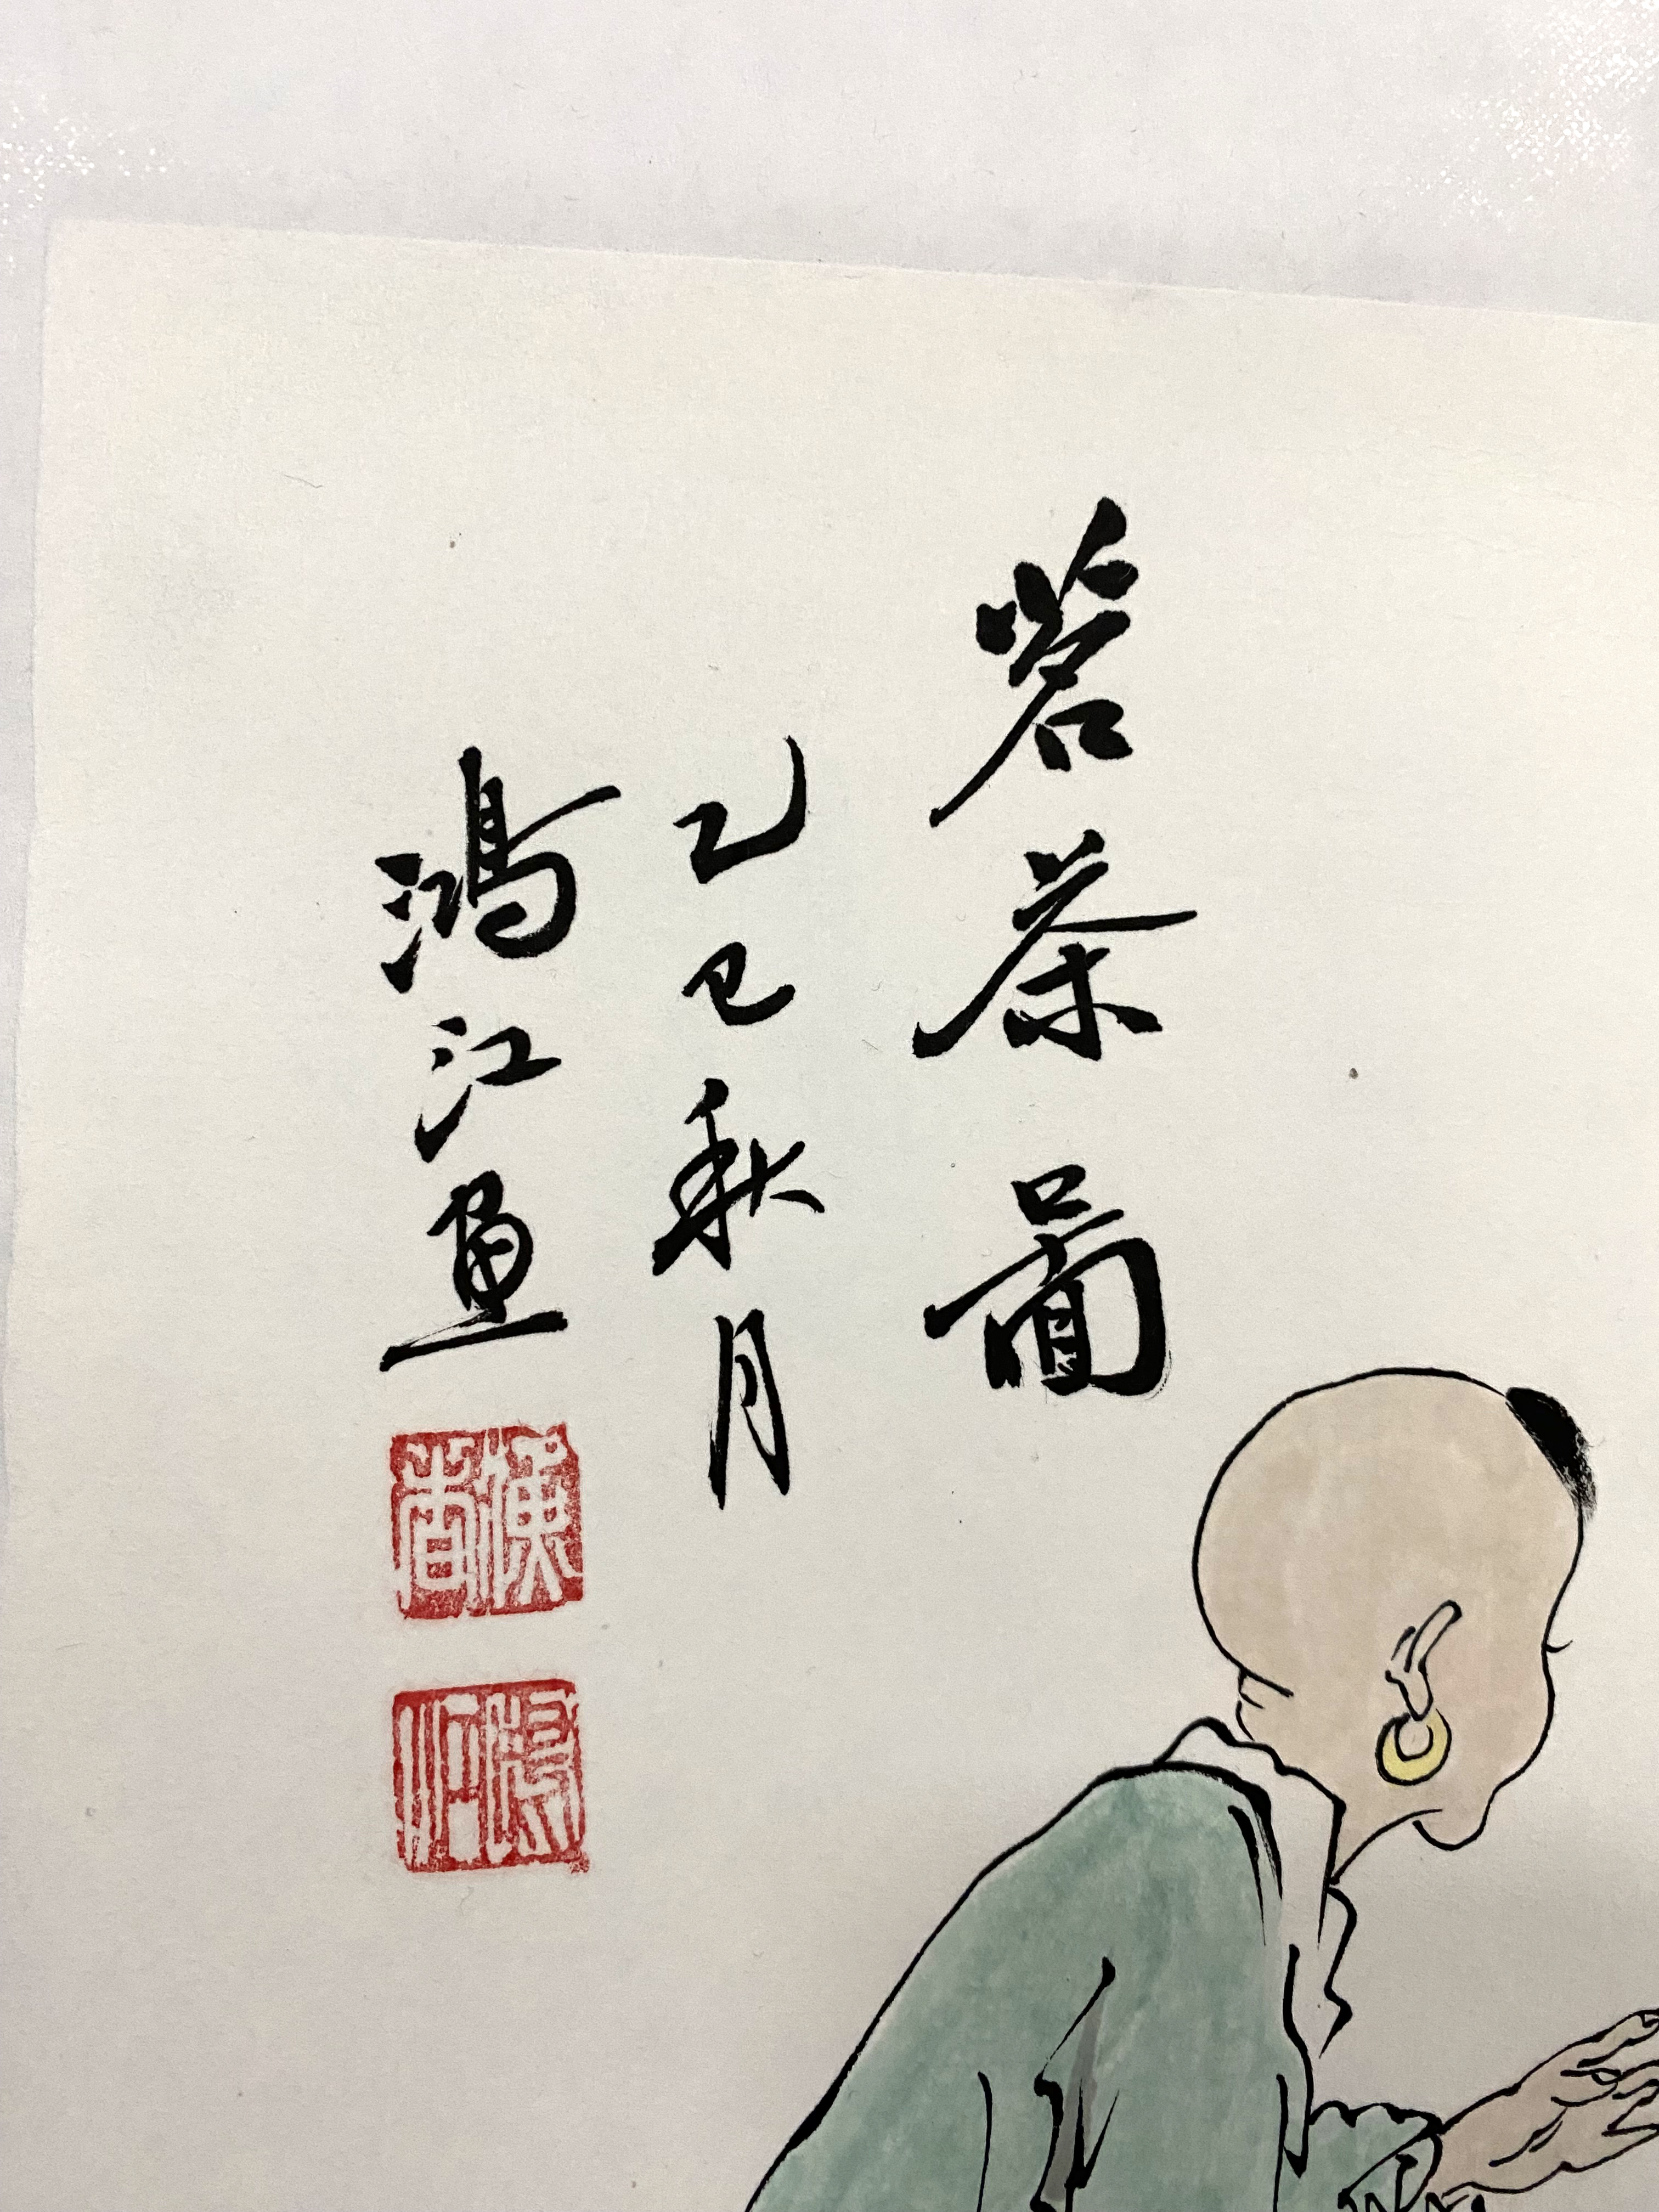 茗茶圖
乙巳秋月
鴻江畫